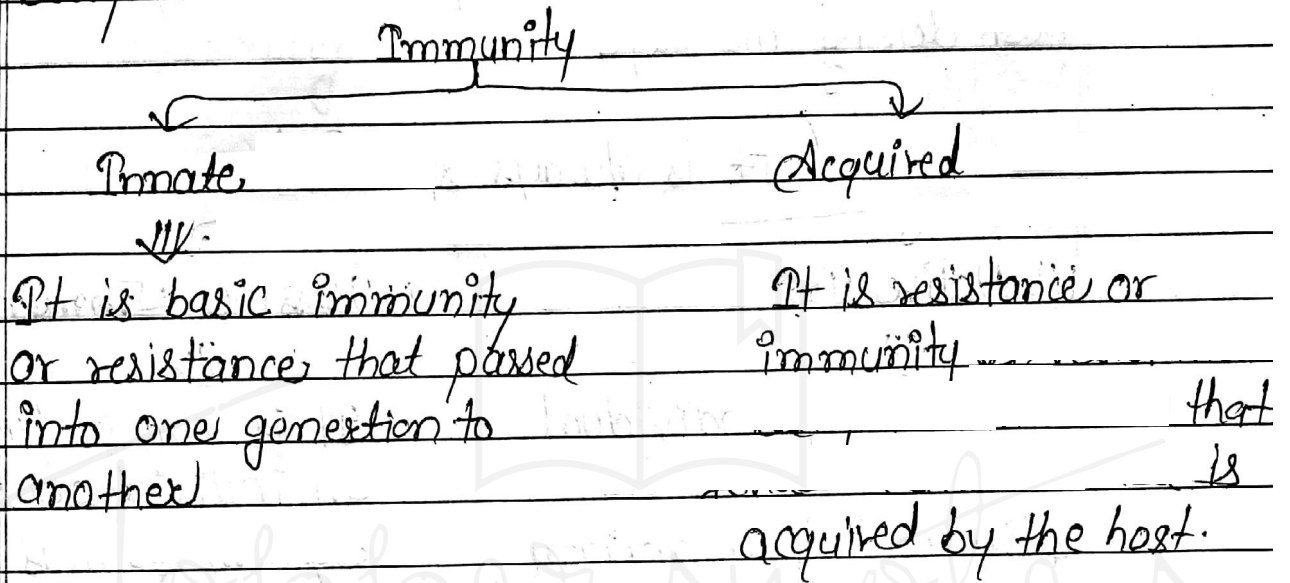 Immunity
Innate
Acquired
It is basic immunity
or resistance that passed
into one genertion to
another
It is resistance or
immunity
that
is
acquired by the host.